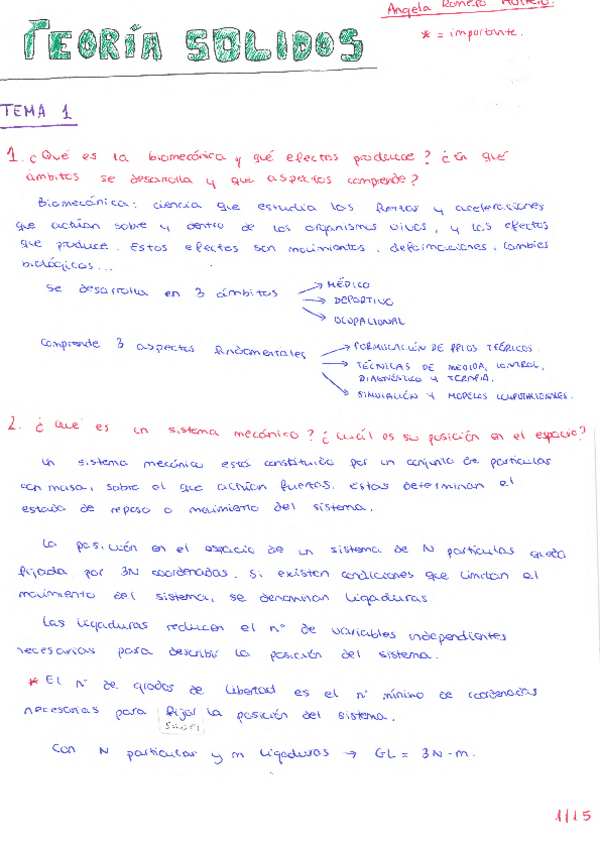 Angela Romero
* = importante.
TEORÍA SOLIDOS
TEMA 1
1. ¿Qué es la biomecánica y qué efectos produce? ¿En qué
ámbitos se desarrolla y que aspectos comprende?
Biomecánica: ciencia que estudia las fuerzas y aceleraciones
que actúan sobre y dentro de los organismos vivos, y los efectos
que produce. Estos efectos son movimientos, deformaciones, cambios
biológicos...
Se desarrolla en 3 ámbitos → MÉDICO
→ DEPORTIVO
→ OCUPACIONAL
Comprende 3 aspectos fundamentales → FORMULACIÓN DE PPIOS TEÓRICOS
→ TÉCNICAS DE MEDIDA, CONTROL,
DIAGNÓSTICO Y TERAPIA.
→ SIMULACIÓN Y MODELOS COMPUTACIONALES.
2. ¿Qué es un sistema mecánico? ¿Cuál es su posición en el espacio?
Un sistema mecánico está constituido por un conjunto de partículas
con masa, sobre el que actúan fuerzas. Estas determinan el
estado de reposo o movimiento del sistema.
La posición en el espacio de un sistema de N partículas queda
fijada por 3N coordenadas. Si existen condiciones que limitan el
movimiento del sistema, se denominan ligaduras
Las ligaduras reducen el nº de variables independientes
necesarias para describir la posición del sistema.
* El nº de grados de libertad es el nº mínimo de coordenadas
necesarias para fijar la posición del sistema.
Con N partículas y m ligaduras → GL = 3N - m.
1/15